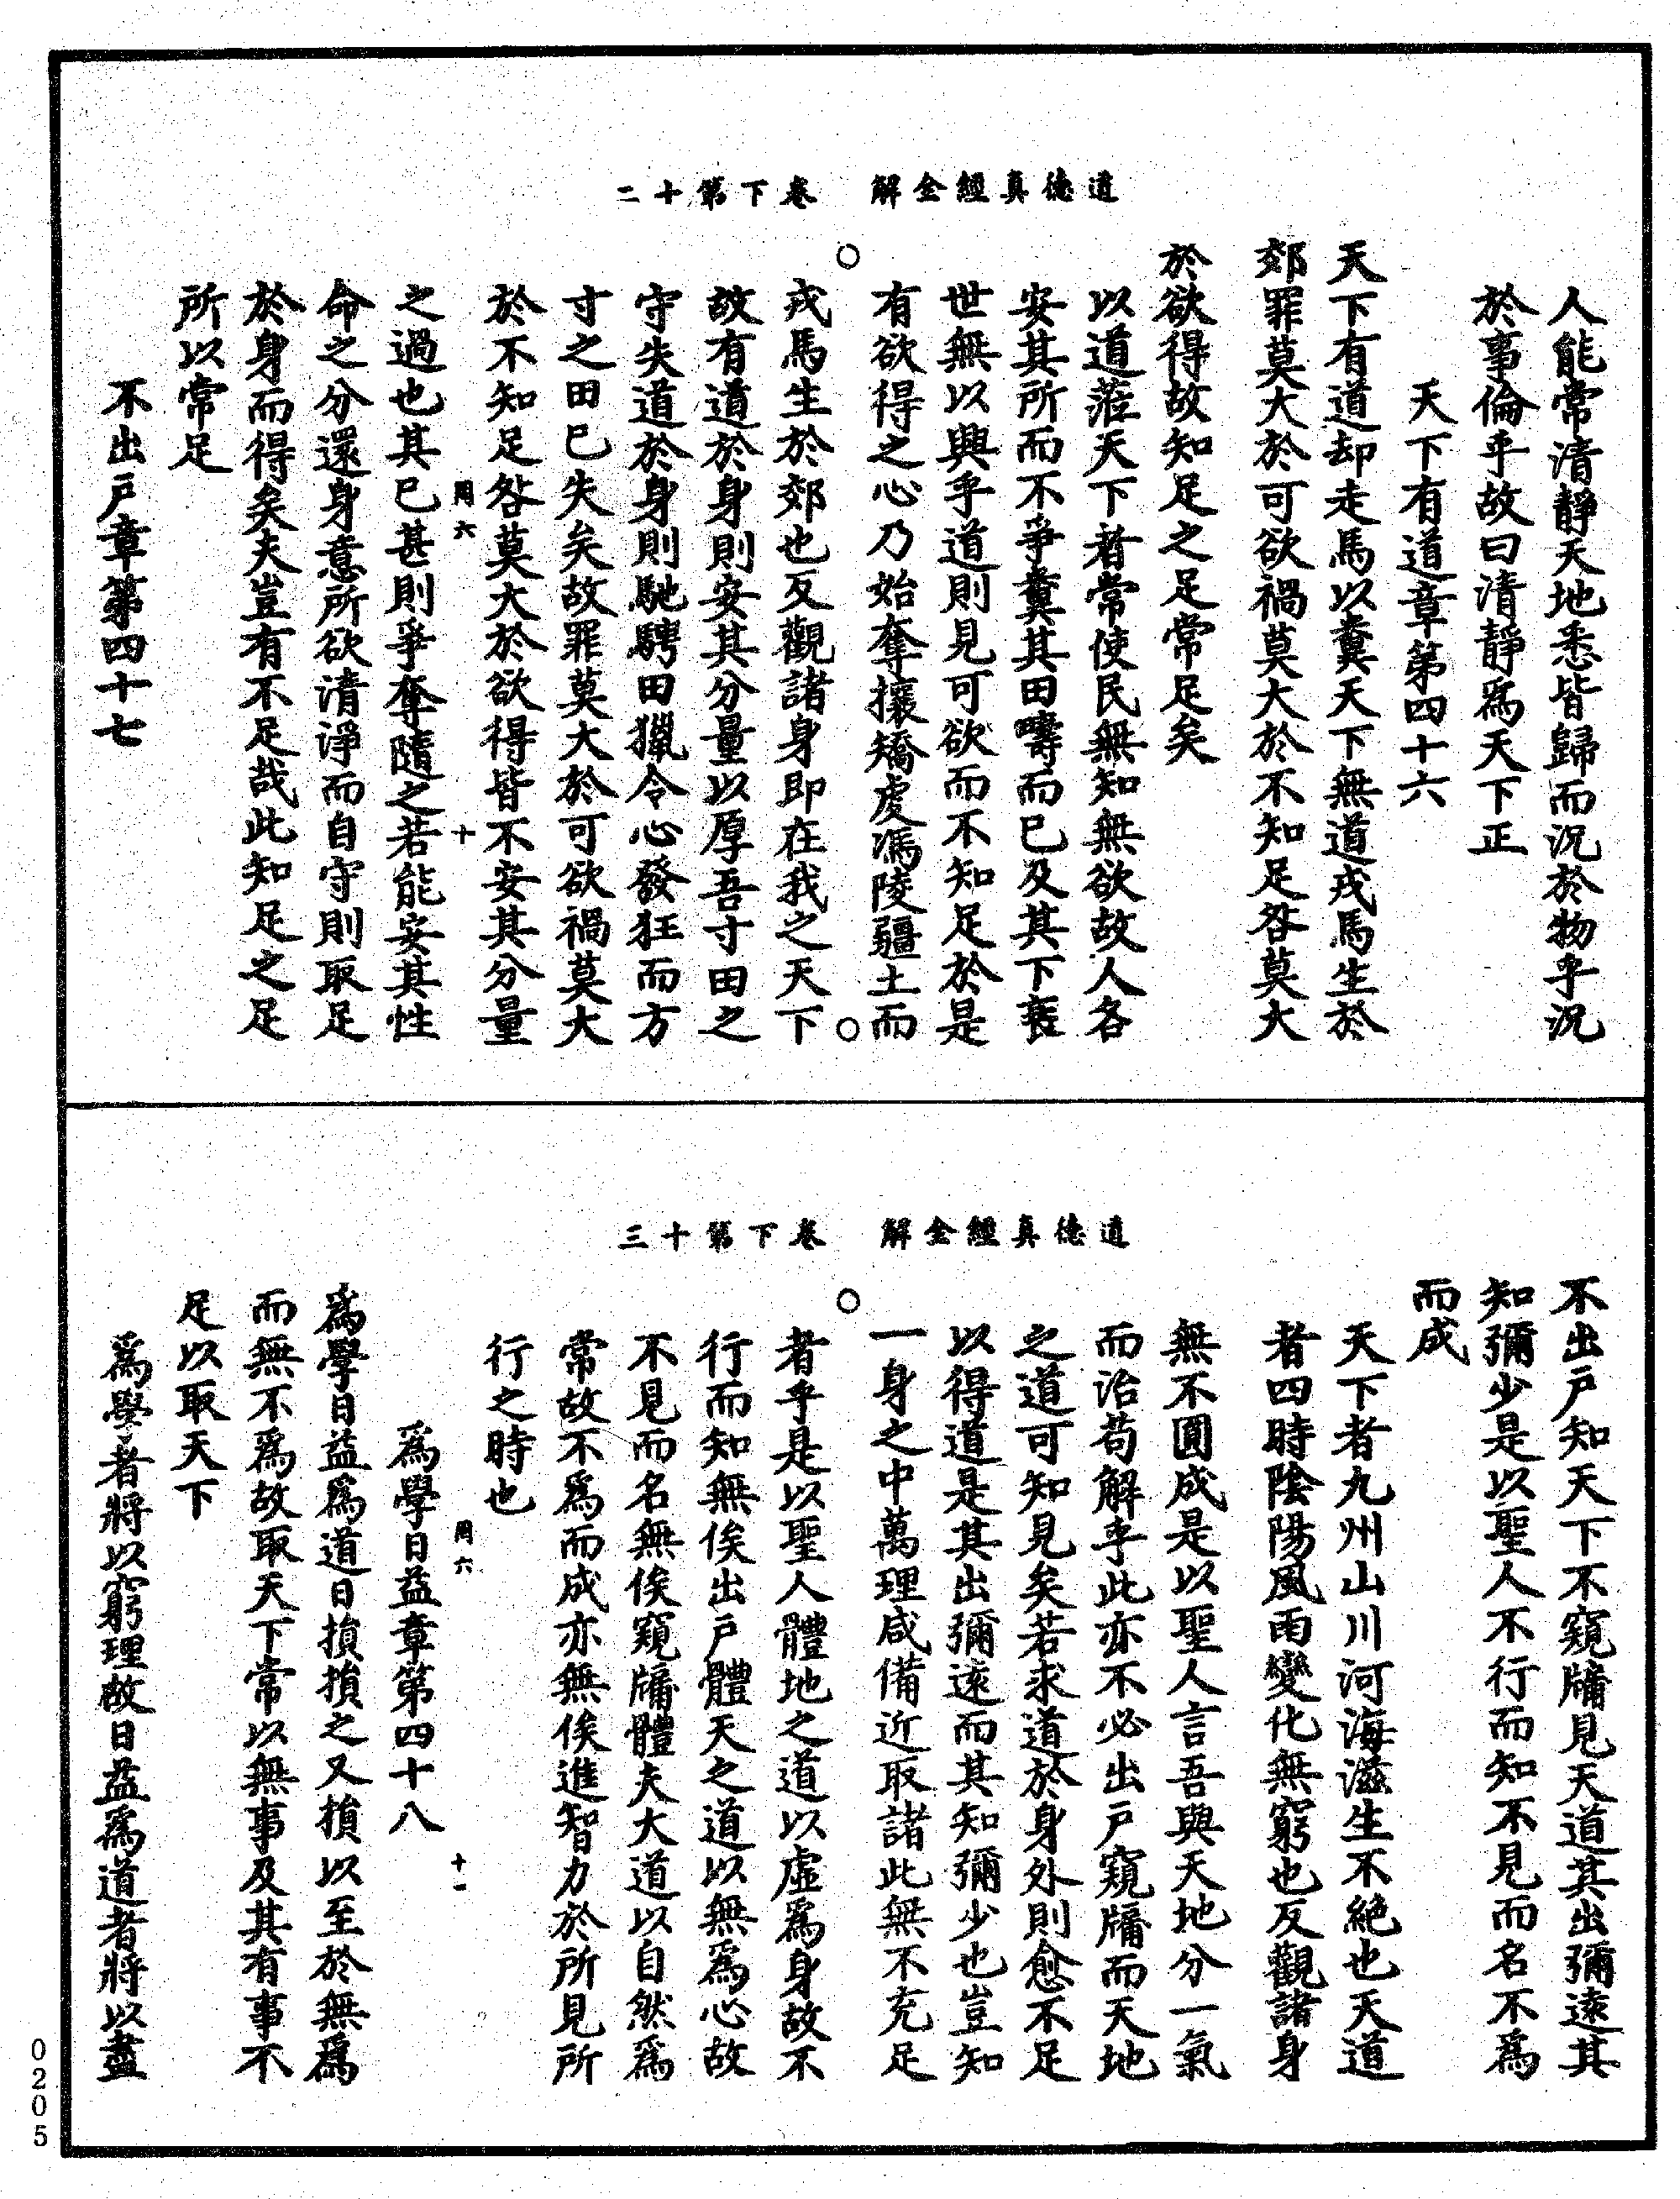 道德真經全解　卷下第十二
人能常清靜天地悉皆歸而況於物乎況
於事倫乎故曰清靜爲天下正
天下有道章第四十六
天下有道却走馬以糞天下無道戎馬生於
郊罪莫大於可欲禍莫大於不知足咎莫大
於欲得故知足之足常足矣
以道蒞天下者常使民無知無欲故人各
安其所而不爭糞其田疇而已及其下衰
世無以興乎道則見可欲而不知足於是
有欲得之心乃始奪攘矯虔馮陵疆土而
戎馬生於郊也反觀諸身即在我之天下
故有道於身則安其分量以厚吾寸田之
守失道於身則馳騁田獵令心發狂而方
寸之田已失矣故罪莫大於可欲禍莫大
於不知足咎莫大於欲得皆不安其分量
罔六　十
之過也其已甚則爭奪隨之若能安其性
命之分還身意所欲清淨而自守則取足
於身而得矣夫豈有不足哉此知足之足
所以常足
不出戶章第四十七
道德真經全解　卷下第十三
不出戶知天下不窺牖見天道其出彌遠其
知彌少是以聖人不行而知不見而名不爲
而成
天下者九州山川河海滋生不絕也天道
者四時陰陽風雨變化無窮也反觀諸身
無不圓成是以聖人言吾與天地分一氣
而治苟解乎此亦不必出戶窺牖而天地
之道可知見矣若求道於身外則愈不足
以得道是其出彌遠而其知彌少也豈知
一身之中萬理咸備近取諸此無不充足
者乎是以聖人體地之道以虛爲身故不
行而知無俟出戶體天之道以無爲心故
不見而名無俟窺牖體夫大道以自然爲
常故不爲而成亦無俟進智力於所見所
行之時也
罔六　十一
爲學日益章第四十八
爲學日益爲道日損損之又損以至於無爲
而無不爲故取天下常以無事及其有事不
足以取天下
爲學者將以窮理故日益爲道者將以盡
0205